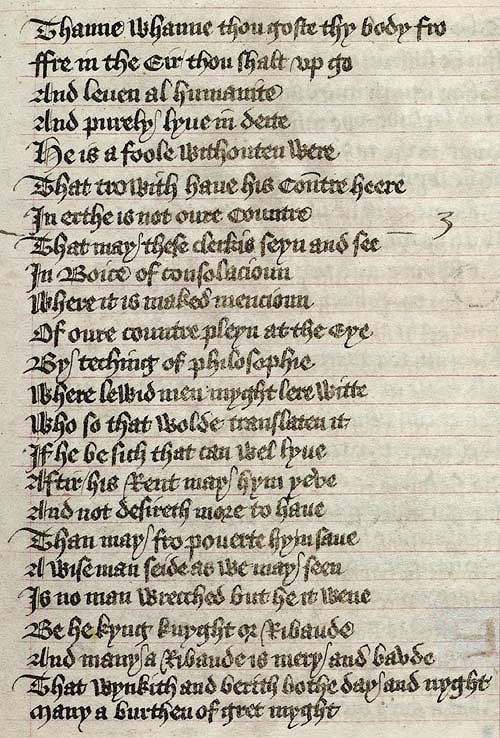 Thanne whanne thou goste thy body fro
ffre in the Eir thou shalt vp go
And leuen al humanite
And purely lyue in deite
He is a foole withouten were
That trowith haue his Contre heere
In erthe is not oure Countre
That may these clerkis seyn and see
In Boice of consolacioun
Where it is maked mencioun
Of oure countre pleyn at the Eye
By teching of philosophie
Where lewid men myght lere witte
Who so that wolde translaten it
If he be sich that can wel lyue
Aftir his Rent may hym yeve
And not desireth more to haue
Than may fro pouerte hym saue
A wise man seide as we may seen
Is no man wrecched but he it wene
Be he kyng knyght or Ribaude
And many a Ribaude is mery and baude
That wynkith and berith bothe day and nyght
Many a burthen of gret myght